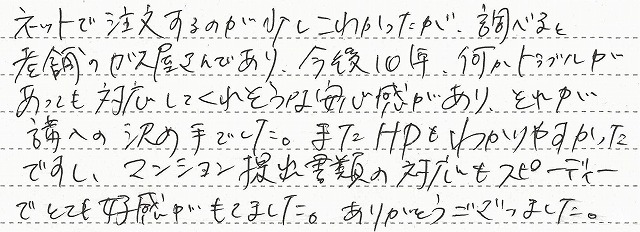 ネットで注文するのが少しこわかったが、調べると
老舗のガス屋さんであり、今後10年、何かトラブルが
あっても対応してくれそうな安心感があり、それが
購入の決め手でした。またHPもわかりやすかった
ですし、マンション提出書類の対応もスピーディー
でとても好感がもてました。ありがとうございました。